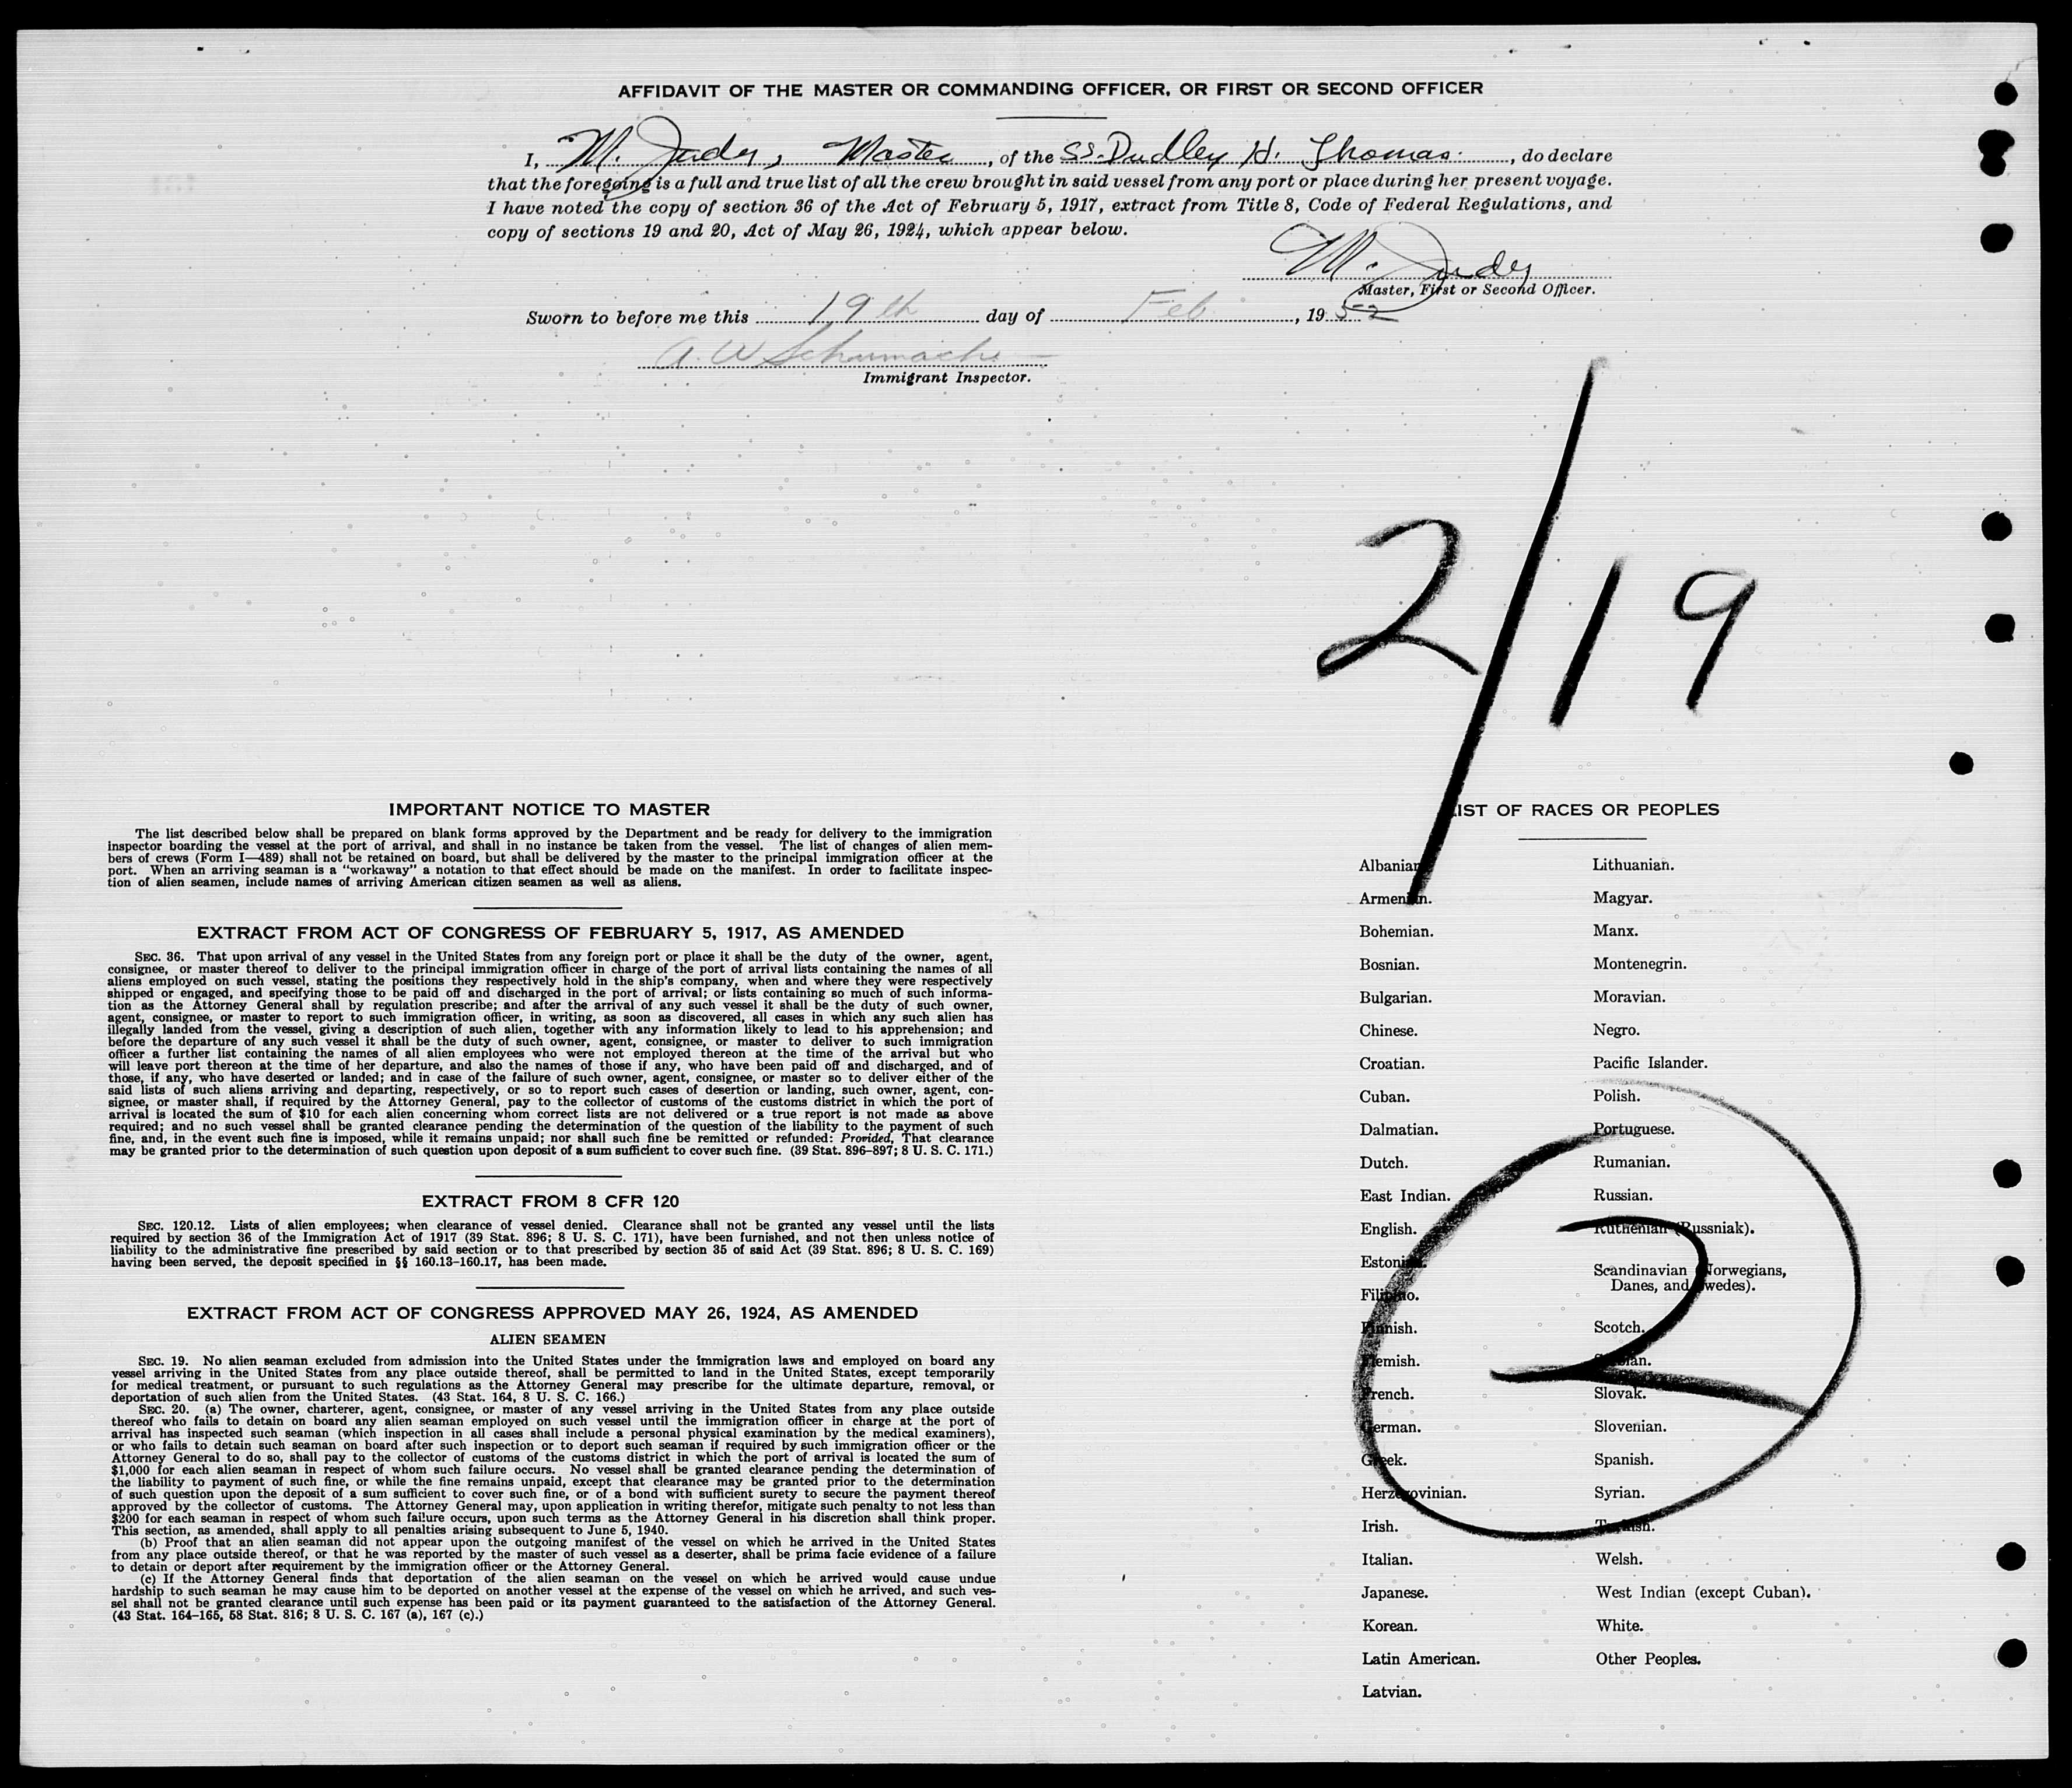 AFFIDAVIT OF THE MASTER OR COMMANDING OFFICER, OR FIRST OR SECOND OFFICER
I, M. , Master, of the SS. Dudley H. Thomas, do declare
that the foregoing is a full and true list of all the crew brought in said vessel from any port or place during her present voyage.
I have noted the copy of section 36 of the Act of February 5, 1917, extract from Title 8, Code of Federal Regulations, and
copy of sections 19 and 20, Act of May 26, 1924, which appear below.
M.
Master, First or Second Officer.
Sworn to before me this 19th day of Feb, 1952
A. W.
Immigrant Inspector.
2/19
IMPORTANT NOTICE TO MASTER
The list described below shall be prepared on blank forms approved by the Department and be ready for delivery to the immigration
inspector boarding the vessel at the port of arrival, and shall in no instance be taken from the vessel. The list of changes of alien mem-
bers of crews (Form I—489) shall not be retained on board, but shall be delivered by the master to the principal immigration officer at the
port. When an arriving seaman is a "workaway" a notation to that effect should be made on the manifest. In order to facilitate inspec-
tion of alien seamen, include names of arriving American citizen seamen as well as aliens.
EXTRACT FROM ACT OF CONGRESS OF FEBRUARY 5, 1917, AS AMENDED
SEC. 36. That upon arrival of any vessel in the United States from any foreign port or place it shall be the duty of the owner, agent,
consignee, or master thereof to deliver to the principal immigration officer in charge of the port of arrival lists containing the names of all
aliens employed on such vessel, stating the positions they respectively hold in the ship's company, when and where they were respectively
shipped or engaged, and specifying those to be paid off and discharged in the port of arrival; or lists containing so much of such informa-
tion as the Attorney General shall by regulation prescribe; and after the arrival of any such vessel it shall be the duty of such owner,
agent, consignee, or master to report to such immigration officer, in writing, as soon as discovered, all cases in which any such alien has
illegally landed from the vessel, giving a description of such alien, together with any information likely to lead to his apprehension; and
before the departure of any such vessel it shall be the duty of such owner, agent, consignee, or master to deliver to such immigration
officer a further list containing the names of all alien employees who were not employed thereon at the time of the arrival but who
will leave port thereon at the time of her departure, and also the names of those if any, who have been paid off and discharged, and of
those, if any, who have deserted or landed; and in case of the failure of such owner, agent, consignee, or master so to deliver either of the
said lists of such aliens arriving and departing, respectively, or so to report such cases of desertion or landing, such owner, agent, con-
signee, or master shall, if required by the Attorney General, pay to the collector of customs of the customs district in which the port of
arrival is located the sum of $10 for each alien concerning whom correct lists are not delivered or a true report is not made as above
required; and no such vessel shall be granted clearance pending the determination of the question of the liability to the payment of such
fine, and, in the event such fine is imposed, while it remains unpaid; nor shall such fine be remitted or refunded: Provided, That clearance
may be granted prior to the determination of such question upon deposit of a sum sufficient to cover such fine. (39 Stat. 896–897; 8 U. S. C. 171.)
EXTRACT FROM 8 CFR 120
SEC. 120.12. Lists of alien employees; when clearance of vessel denied. Clearance shall not be granted any vessel until the lists
required by section 36 of the Immigration Act of 1917 (39 Stat. 896; 8 U. S. C. 171), have been furnished, and not then unless notice of
liability to the administrative fine prescribed by said section or to that prescribed by section 35 of said Act (39 Stat. 896; 8 U. S. C. 169)
having been served, the deposit specified in §§ 160.13–160.17, has been made.
EXTRACT FROM ACT OF CONGRESS APPROVED MAY 26, 1924, AS AMENDED
ALIEN SEAMEN
SEC. 19. No alien seaman excluded from admission into the United States under the immigration laws and employed on board any
vessel arriving in the United States from any place outside thereof, shall be permitted to land in the United States, except temporarily
for medical treatment, or pursuant to such regulations as the Attorney General may prescribe for the ultimate departure, removal, or
deportation of such alien from the United States. (43 Stat. 164, 8 U. S. C. 166.)
SEC. 20. (a) The owner, charterer, agent, consignee, or master of any vessel arriving in the United States from any place outside
thereof who fails to detain on board any alien seaman employed on such vessel until the immigration officer in charge at the port of
arrival has inspected such seaman (which inspection in all cases shall include a personal physical examination by the medical examiners),
or who fails to detain such seaman on board after such inspection or to deport such seaman if required by such immigration officer or the
Attorney General to do so, shall pay to the collector of customs of the customs district in which the port of arrival is located the sum of
$1,000 for each alien seaman in respect of whom such failure occurs. No vessel shall be granted clearance pending the determination of
the liability to payment of such fine, or while the fine remains unpaid, except that clearance may be granted prior to the determination
of such question upon the deposit of a sum sufficient to cover such fine, or of a bond with sufficient surety to secure the payment thereof
approved by the collector of customs. The Attorney General may, upon application in writing therefor, mitigate such penalty to not less than
$200 for each seaman in respect of whom such failure occurs, upon such terms as the Attorney General in his discretion shall think proper.
This section, as amended, shall apply to all penalties arising subsequent to June 5, 1940.
(b) Proof that an alien seaman did not appear upon the outgoing manifest of the vessel on which he arrived in the United States
from any place outside thereof, or that he was reported by the master of such vessel as a deserter, shall be prima facie evidence of a failure
to detain or deport after requirement by the immigration officer or the Attorney General.
(c) If the Attorney General finds that deportation of the alien seaman on the vessel on which he arrived would cause undue
hardship to such seaman he may cause him to be deported on another vessel at the expense of the vessel on which he arrived, and such ves-
sel shall not be granted clearance until such expense has been paid or its payment guaranteed to the satisfaction of the Attorney General.
(43 Stat. 164–165, 58 Stat. 816; 8 U. S. C. 167 (a), 167 (c).)
LIST OF RACES OR PEOPLES
Albanian.
Armenian.
Bohemian.
Bosnian.
Bulgarian.
Chinese.
Croatian.
Cuban.
Dalmatian.
Dutch.
East Indian.
English.
Estonian.
Filipino.
Finnish.
Flemish.
French.
German.
Greek.
Herzegovinian.
Irish.
Italian.
Japanese.
Korean.
Latin American.
Latvian.
Lithuanian.
Magyar.
Manx.
Montenegrin.
Moravian.
Negro.
Pacific Islander.
Polish.
Portuguese.
Rumanian.
Russian.
Ruthenian (Russniak).
Scandinavian (Norwegians,
Danes, and Swedes).
Scotch.
Serbian.
Slovak.
Slovenian.
Spanish.
Syrian.
Turkish.
Welsh.
West Indian (except Cuban).
White.
Other Peoples.
2